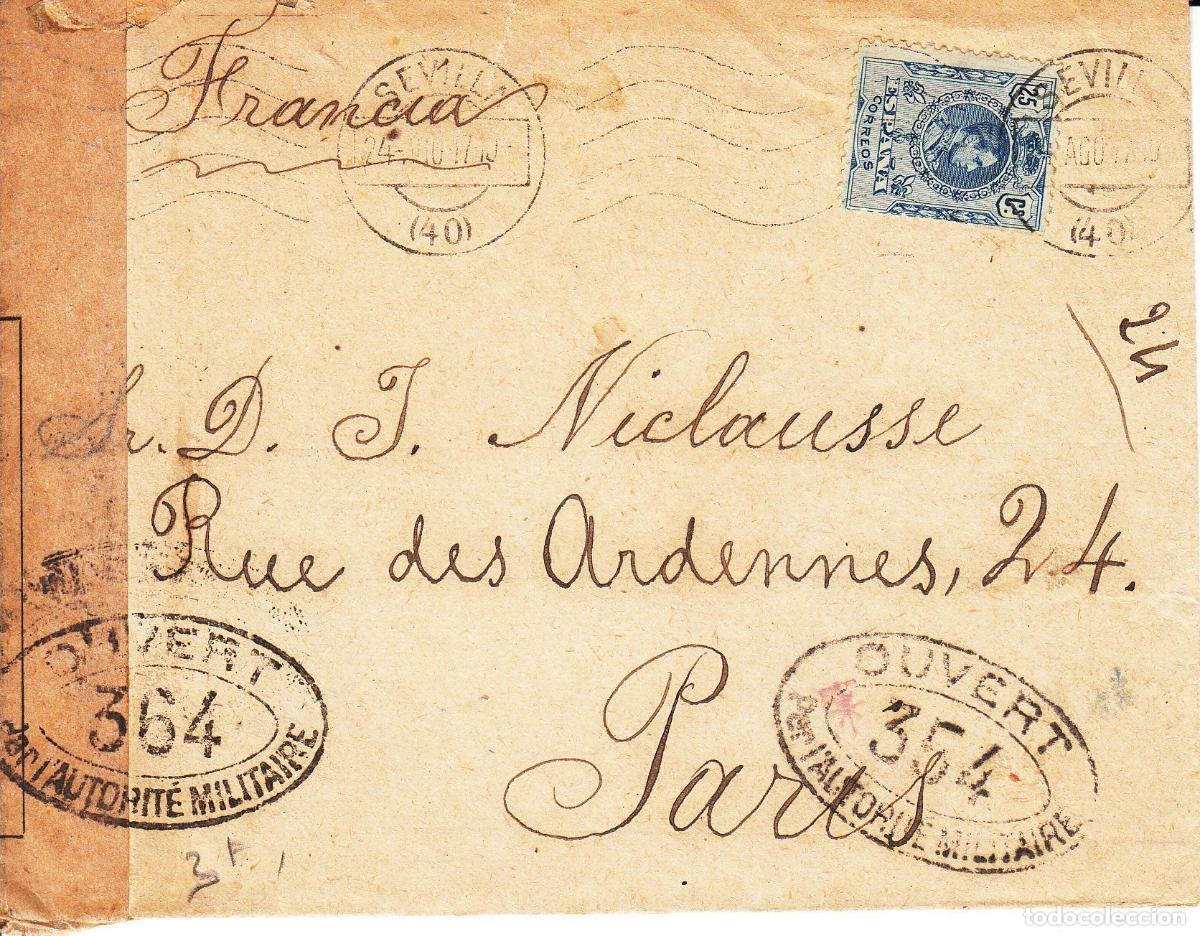 Francia
SEVILLA
(40)
25 Cs
CORREOS
ESPAÑA
SEVILLA
AGO
(40)
24
Sr. D. J. Niclausse
Rue des Ardennes, 24.
Paris
OUVERT
364
par l'AUTORITÉ MILITAIRE
OUVERT
354
par l'AUTORITÉ MILITAIRE
todocoleccion